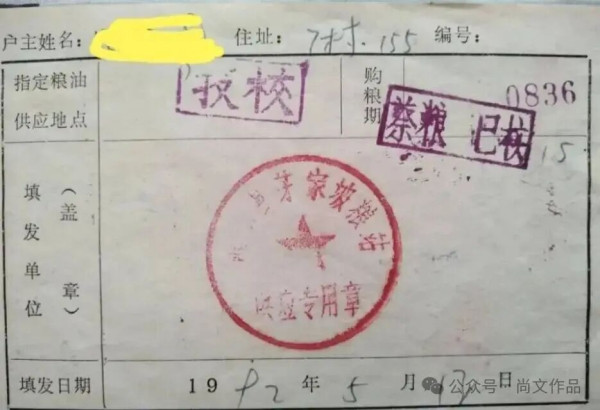 户主姓名： 住址：7村.155 编号：
指定粮油供应地点
技校
购粮期
0836
蔡粮 已核
15
填发单位（盖章）
茅家坡粮站
供应专用章
填发日期 1992年5月13日
公众号·尚文作品